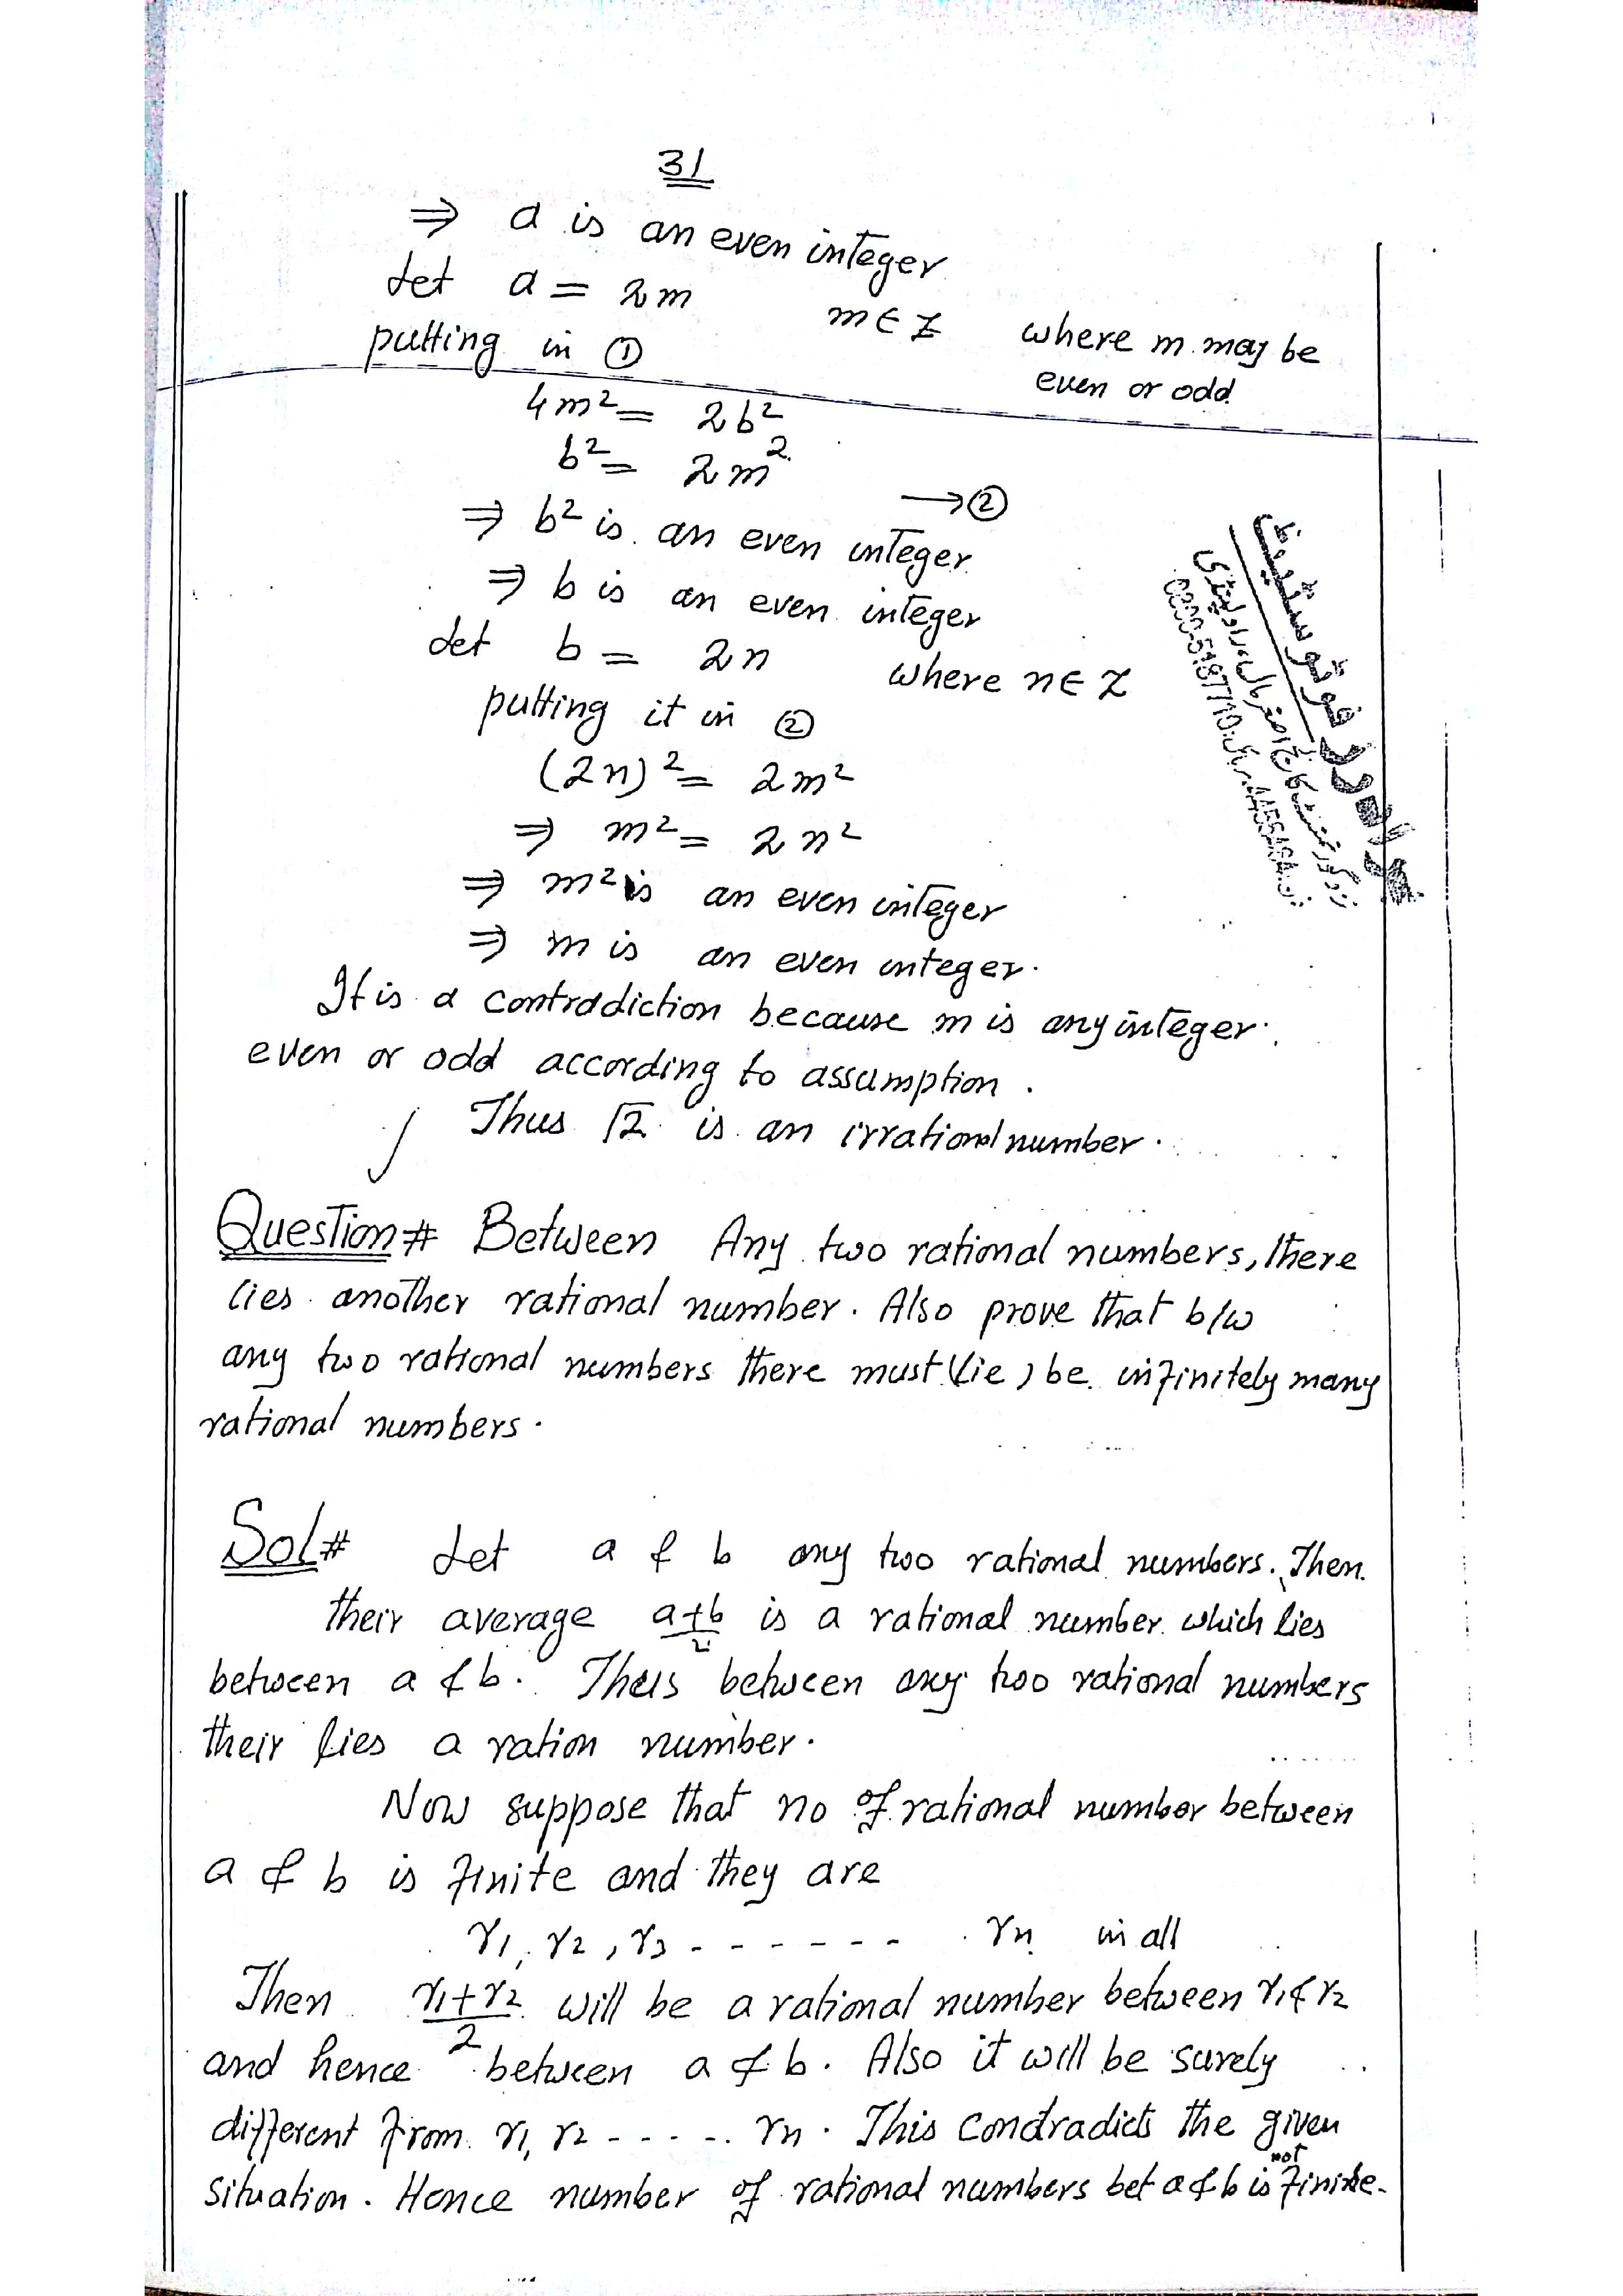 31
⇒ a is an even integer
Let a = 2m m ∈ Z where m may be
even or odd
putting in ①
4m² = 2b²
b² = 2m² → ②
⇒ b² is an even integer
⇒ b is an even integer
Let b = 2n where n ∈ Z
putting it in ②
(2n)² = 2m²
⇒ m² = 2n²
⇒ m² is an even integer
⇒ m is an even integer.
It is a contradiction because m is any integer
even or odd according to assumption.
Thus √2 is an irrational number.
Question# Between Any two rational numbers, there
lies another rational number. Also prove that b/w
any two rational numbers there must (lie) be infinitely many
rational numbers.
Sol# Let a & b any two rational numbers. Then
their average a+b/2 is a rational number which lies
between a & b. Thus between any two rational numbers
their lies a ration number.
Now suppose that no of rational number between
a & b is finite and they are
r1, r2, r3 - - - - - - - rn in all
Then r1+r2/2 will be a rational number between r1 & r2
and hence between a & b. Also it will be surely
different from r1, r2 - - - - - rn. This condradicts the given
situation. Hence number of rational numbers bet a & b is not finite.
فوٹوسٹیٹ